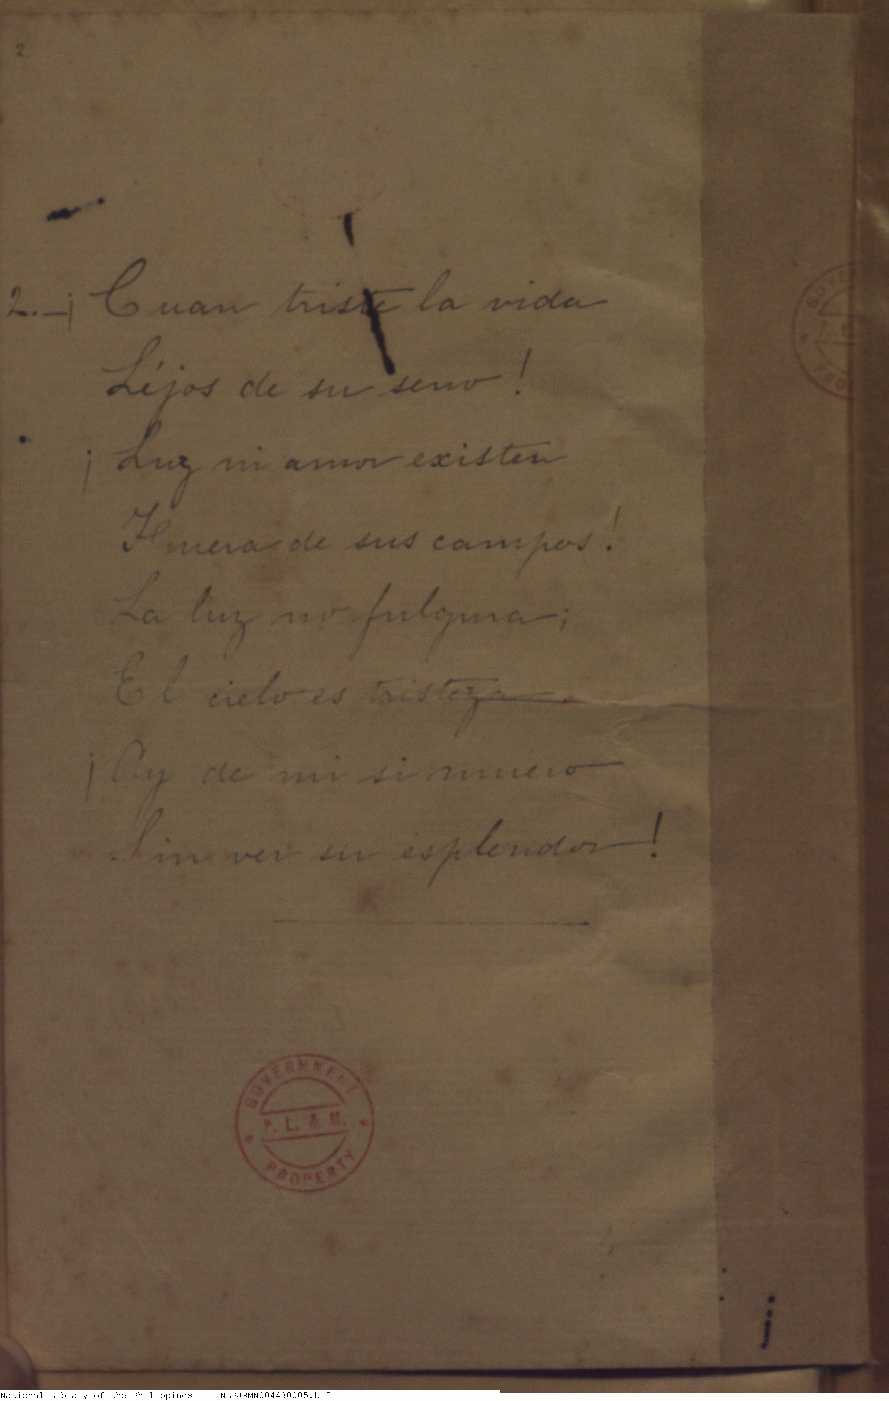 2
2.—¡Cuan triste la vida
Léjos de su seno!
¡Luz ni amor existen
Fuera de sus campos!
La luz no fulgura;
El cielo es tristeza
¡Ay de mi si muero
Sin ver su esplendor!
GOVERNMENT
P. L. & M.
PROPERTY
National Library of the Philippines